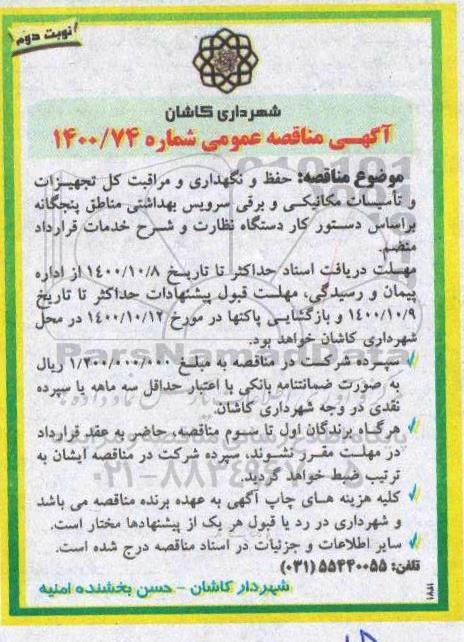 نوبت دوم
شهرداری کاشان
آگهی مناقصه عمومی شماره ۱۴۰۰/۷۴
موضوع مناقصه: حفظ و نگهداری و مراقبت کل تجهیزات
و تأسیسات مکانیکی و برقی سرویس بهداشتی مناطق پنجگانه
براساس دستور کار دستگاه نظارت و شرح خدمات قرارداد
منضم.
مهلت دریافت اسناد حداکثر تا تاریخ ۱۴۰۰/۱۰/۸ از اداره
پیمان و رسیدگی، مهلت قبول پیشنهادات حداکثر تا تاریخ
۱۴۰۰/۱۰/۹ و بازگشایی پاکتها در مورخ ۱۴۰۰/۱۰/۱۲ در محل
شهرداری کاشان خواهد بود.
سپرده شرکت در مناقصه به مبلغ ۱/۲۰۰/۰۰۰/۰۰۰ ریال
به صورت ضمانتنامه بانکی با اعتبار حداقل سه ماهه یا سپرده
نقدی در وجه شهرداری کاشان.
هرگاه برندگان اول تا سوم مناقصه، حاضر به عقد قرارداد
در مهلت مقرر نشوند، سپرده شرکت در مناقصه ایشان به
ترتیب ضبط خواهد گردید.
کلیه هزینه های چاپ آگهی به عهده برنده مناقصه می باشد
و شهرداری در رد یا قبول هر یک از پیشنهادها مختار است.
سایر اطلاعات و جزئیات در اسناد مناقصه درج شده است.
تلفن: ۵۵۴۴۰۰۵۵ (۰۳۱)
شهردار کاشان - حسن بخشنده امنیه
۱۲۷۱
ParsNamadData